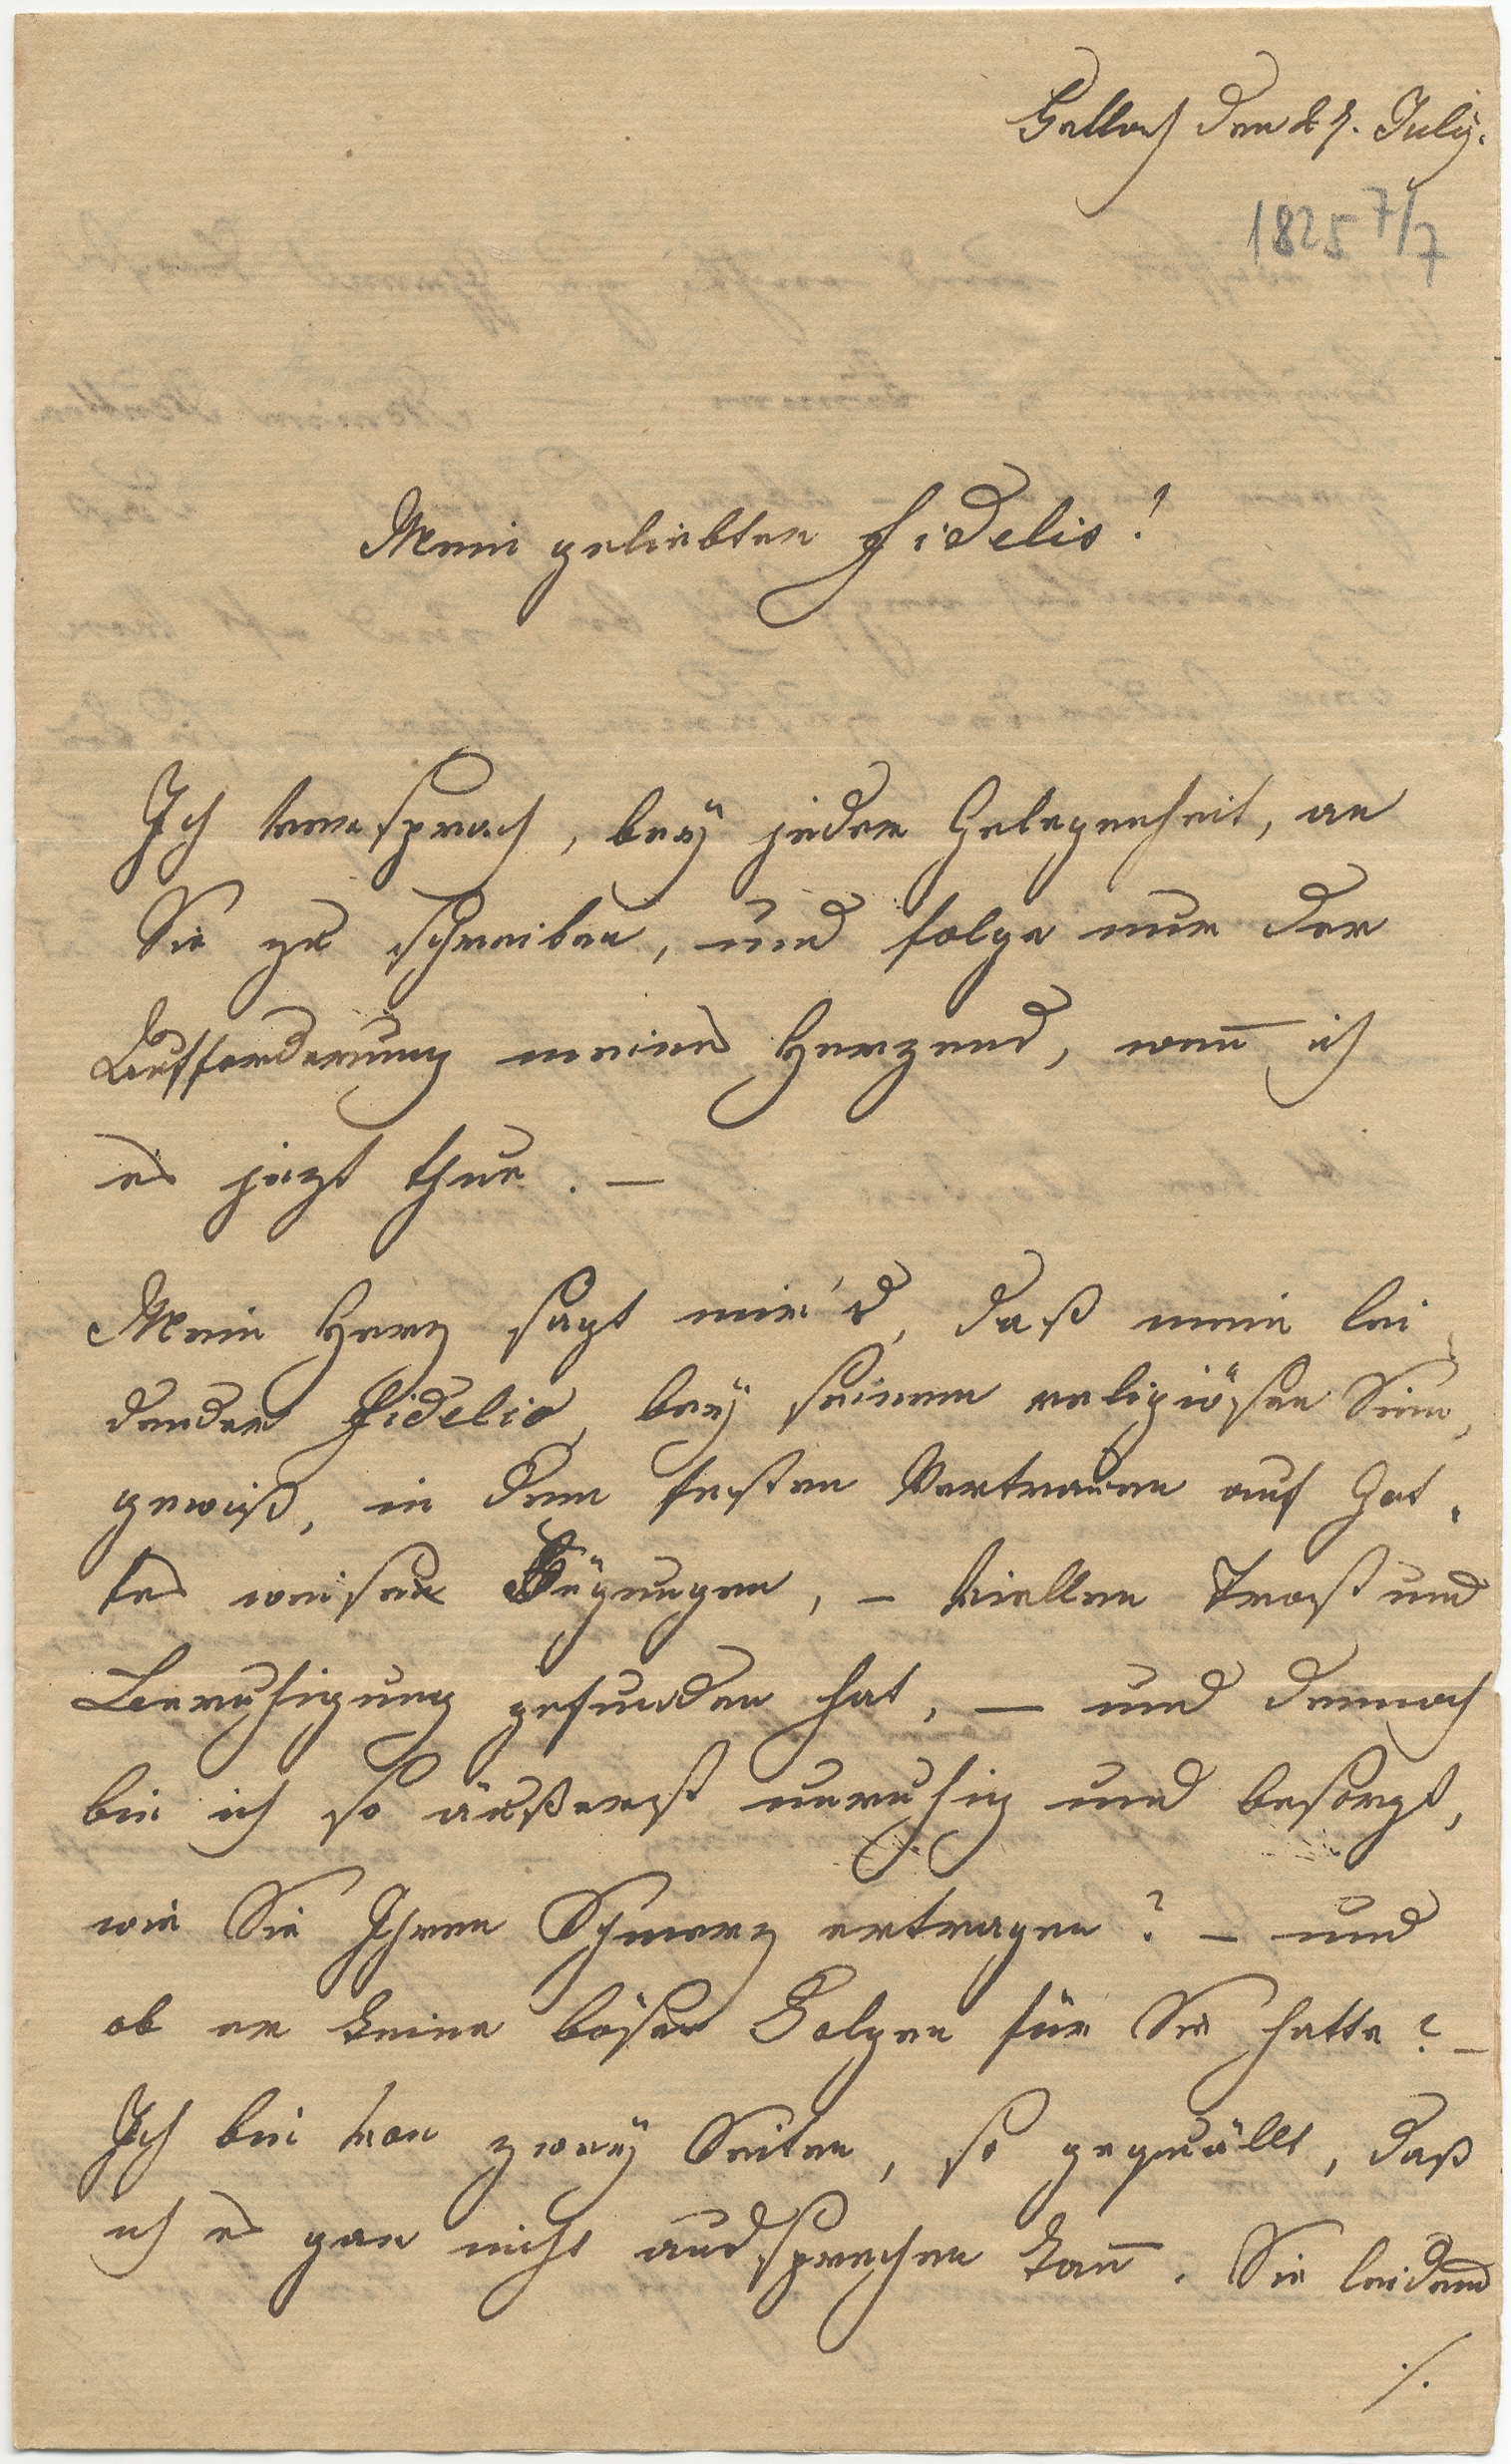 Gallach den 27. July.
1825 7/7
Mein geliebter Fidelis!
Ich versprach, beÿ jeder Gelegenheit, an
Sie zu schreiben, und folge nur der
Aufforderung meines Herzens, wen̄ ich
es jezt thue. –
Mein Herz sagt mir's, daß mein lei
dender Fidelis, beÿ seinem religiösen Sinn,
gewiß, in dem festen Vertrauen auf Got,
tes weisen Fügungen, – viellen Trost und
Beruhigung gefunden hat, – und dennoch
bin ich so äußerst unruhig und besorgt,
wie Sie Ihren Schmerz ertragen? – und
ob er keine bösen Folgen für Sie hatte? –
Ich bin von zweÿ Seiten, so gequällt, daß
ich es gar nicht aussprechen kan̄. Sie leidend
./.